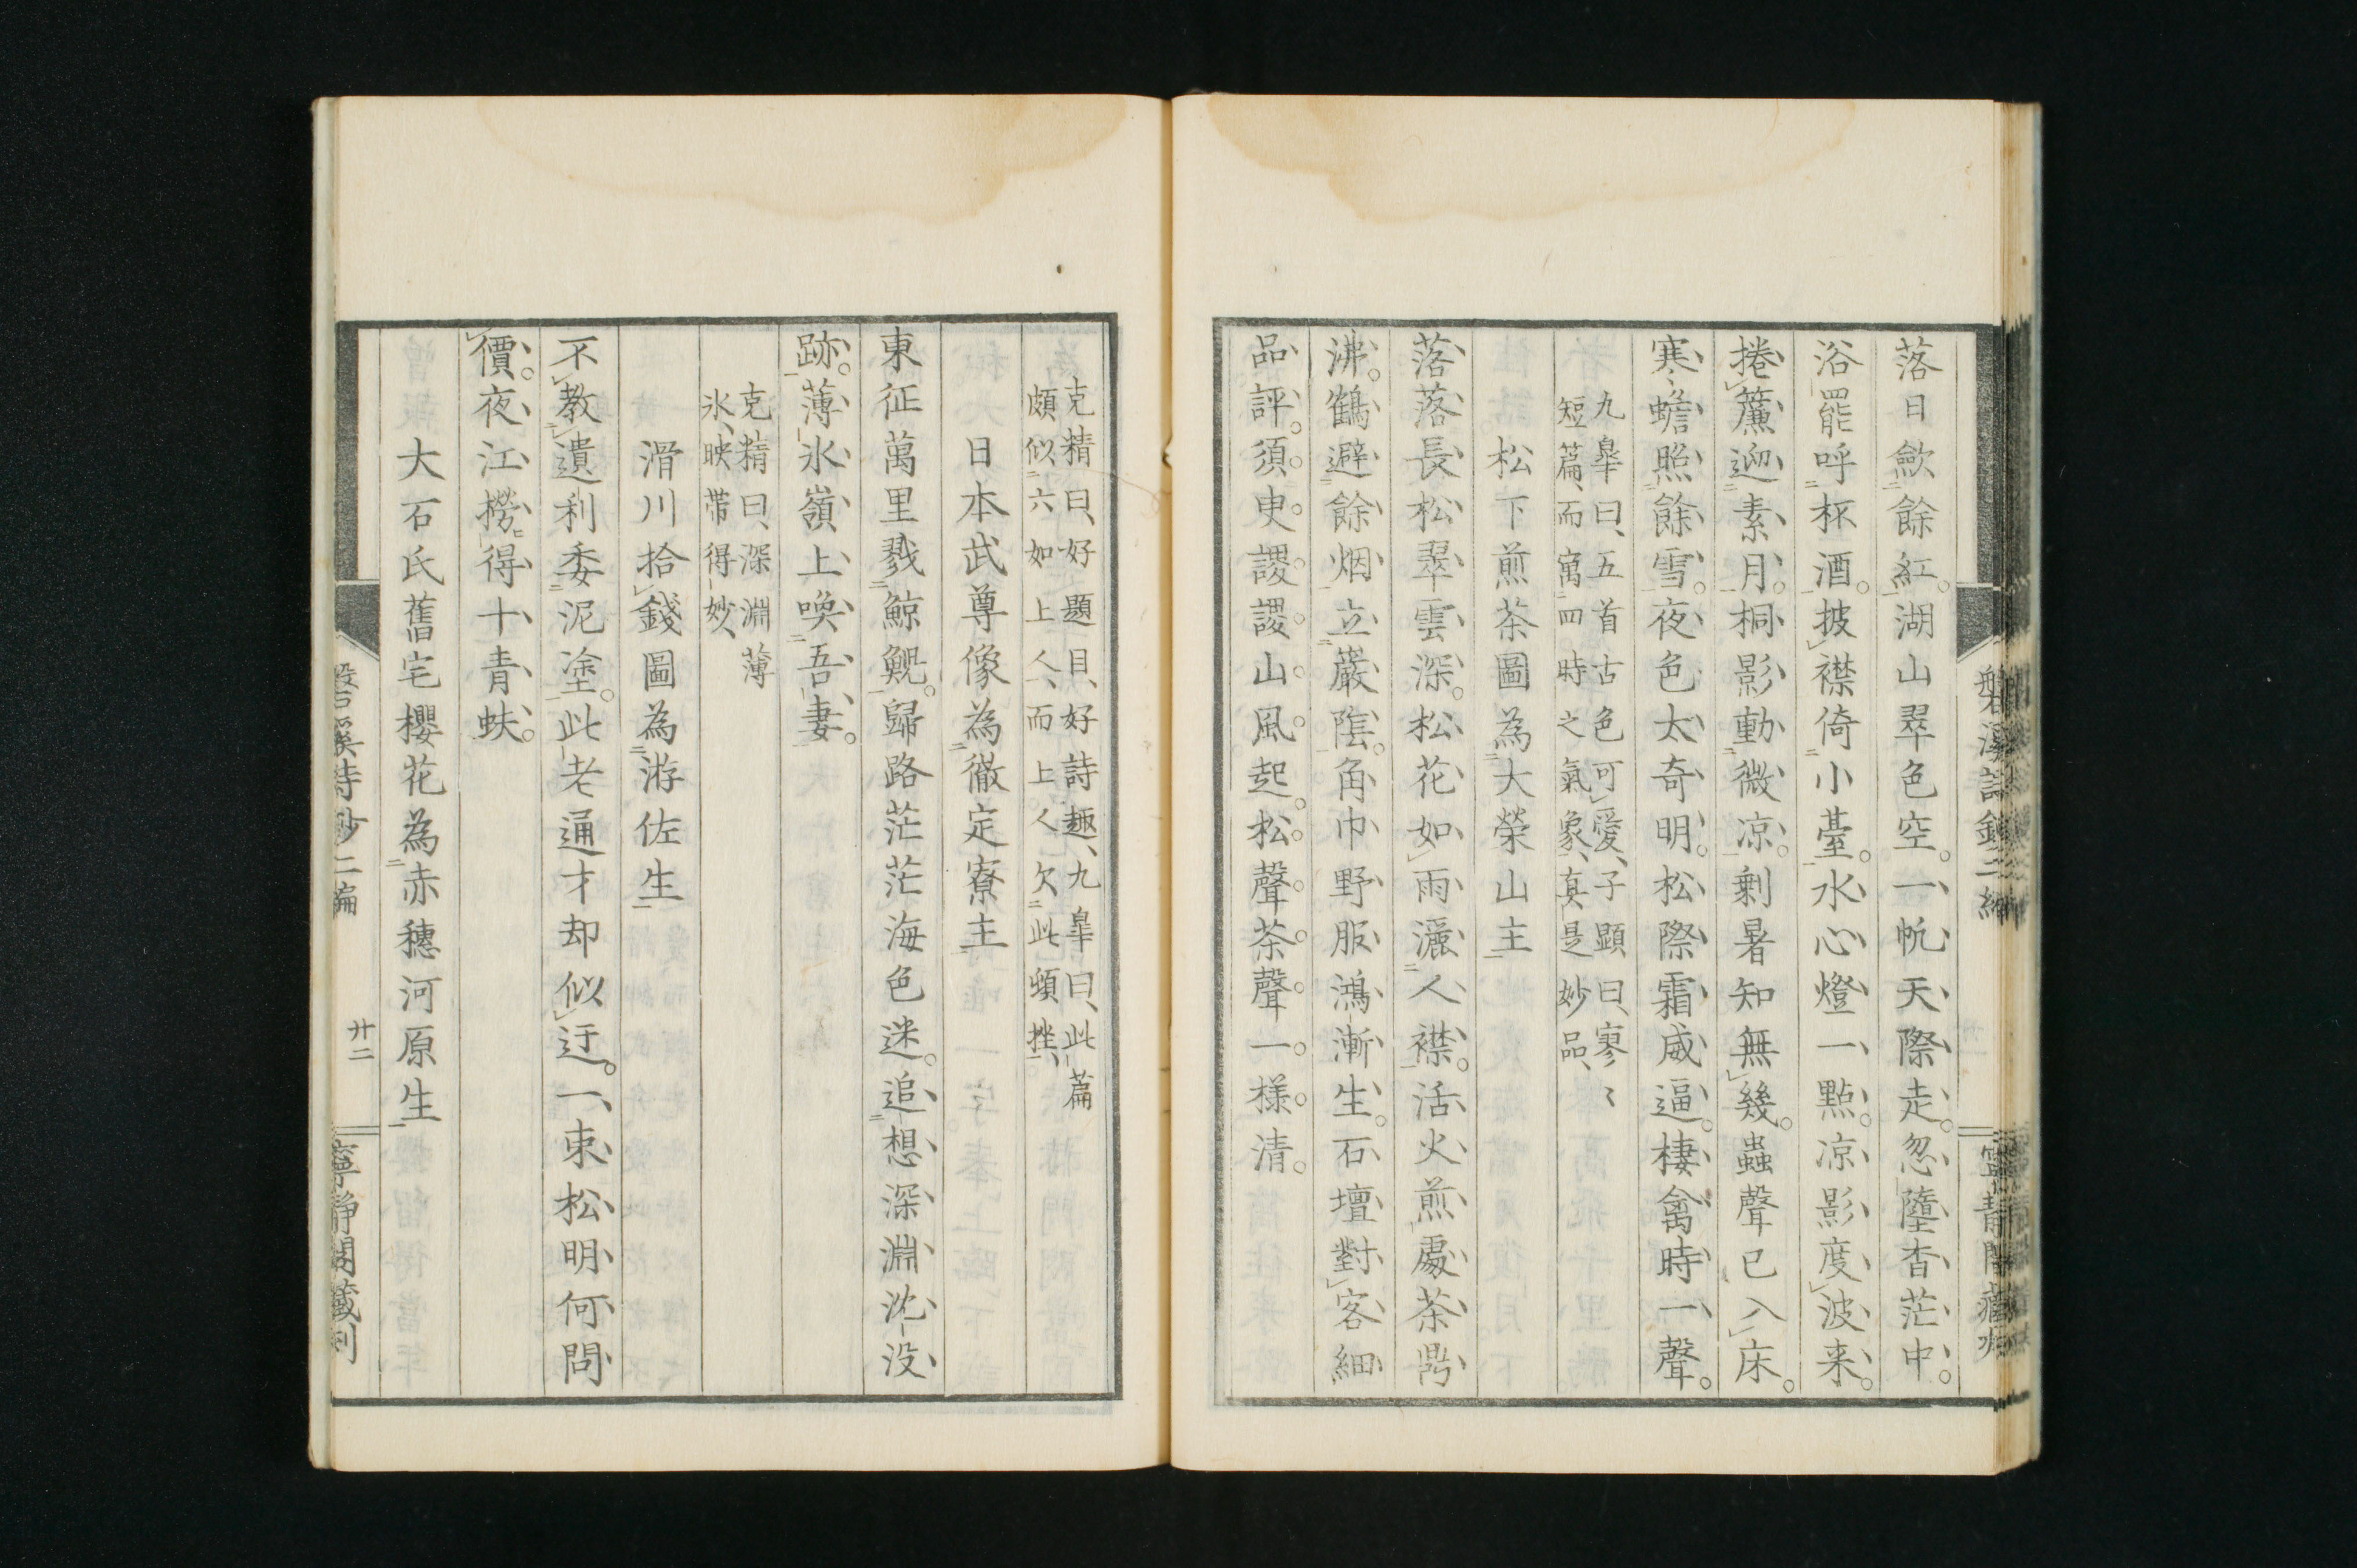 落日歛餘紅。湖山翠色空。一帆天際走。忽墮杳茫中。
浴罷呼杯酒。披襟倚小臺。水心燈一點。凉影度波来。
捲簾迎素月。桐影動微凉。剩暑知無幾。蟲聲已入床。
寒蟾照餘雪。夜色太奇明。松際霜威逼。棲禽時一聲。
九皐曰、五首古色可愛、子顕曰、寥〻
短篇、而寓四時之氣象、真是妙品、
松下煎茶圖為大榮山主
落落長松翠雲深。松花如雨灑人襟。活火煎處茶鼎
沸。鶴避餘烟立巖陰。角巾野服鴻漸生。石壇對客細
品評。須臾謖謖山風起。松聲茶聲一様清。
克精曰、好題目、好詩趣、九皐曰、此篇
頗似六如上人、而上人欠此頓挫、
日本武尊像為徹定寮主
東征萬里戮鯨鯢。歸路茫茫海色迷。追想深淵沈没
跡。薄氷嶺上喚吾妻。
克精曰、深淵薄
氷、映帯得妙、
滑川拾錢圖為游佐生
不教遺利委泥塗。此老通才却似迂。一束松明何問
價。夜江撈得十青蚨。
大石氏舊宅櫻花為赤穗河原生
磐溪詩鈔二編
廿二
寧静閣藏刊